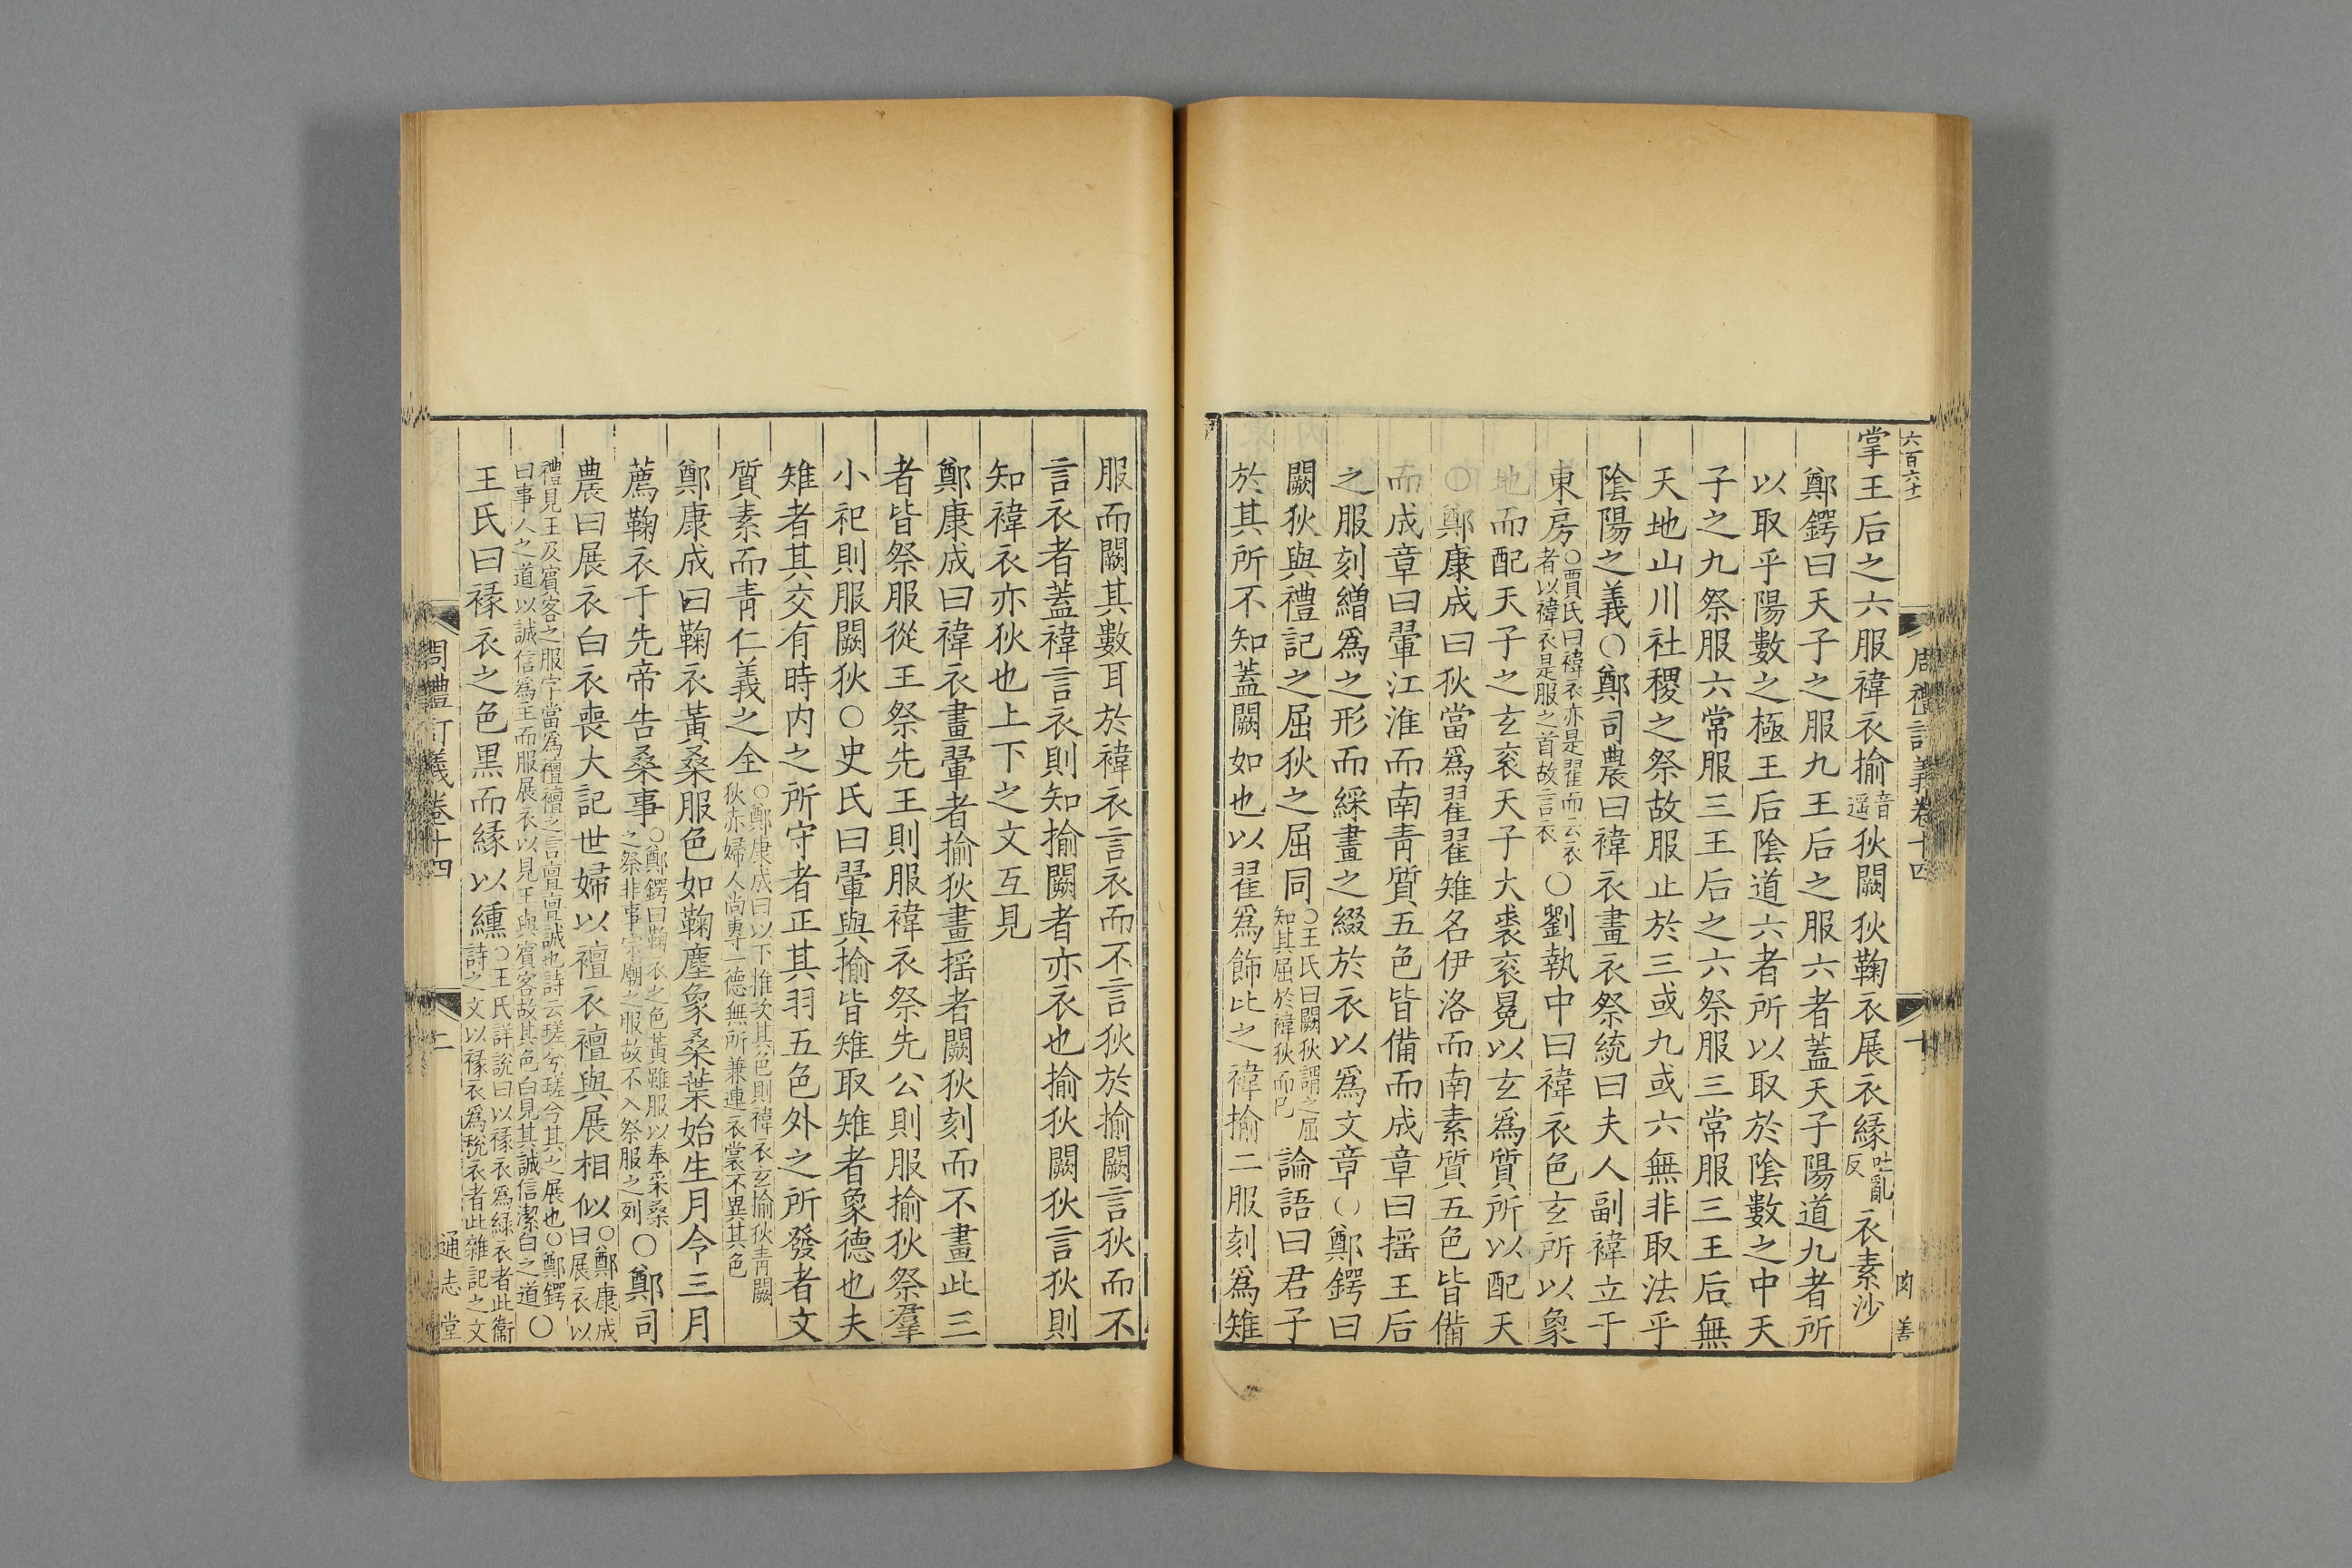 六百六十一
周禮訂義卷十四
十
肉善
掌王后之六服褘衣揄音遥狄闕狄鞠衣展衣緣吐亂反衣素沙
鄭鍔曰天子之服九王后之服六者蓋天子陽道九者所
以取乎陽數之極王后陰道六者所以取於陰數之中天
子之九祭服六常服三王后之六祭服三常服三王后無
天地山川社稷之祭故服止於三或九或六無非取法乎
陰陽之義〇鄭司農曰褘衣畫衣祭統曰夫人副褘立于
東房〇賈氏曰褘衣亦是翟而云衣者以褘衣是服之首故言衣〇劉執中曰褘衣色玄所以象
地而配天子之玄衮天子大裘衮冕以玄爲質所以配天
〇鄭康成曰狄當爲翟翟雉名伊洛而南素質五色皆備
而成章曰翬江淮而南青質五色皆備而成章曰搖王后
之服刻繒爲之形而綵畫之綴於衣以爲文章〇鄭鍔曰
闕狄與禮記之屈狄之屈同〇王氏曰闕狄謂之屈知其屈於褘狄而已論語曰君子
於其所不知蓋闕如也以翟爲飾比之褘揄二服刻爲雉
服而闕其數耳於褘衣言衣而不言狄於揄闕言狄而不
言衣者蓋褘言衣則知揄闕者亦衣也揄狄闕狄言狄則
知褘衣亦狄也上下之文互見
鄭康成曰褘衣畫翬者揄狄畫搖者闕狄刻而不畫此三
者皆祭服從王祭先王則服褘衣祭先公則服揄狄祭羣
小祀則服闕狄〇史氏曰翬與揄皆雉取雉者象德也夫
雉者其交有時内之所守者正其羽五色外之所發者文
質素而青仁義之全〇鄭康成曰以下推次其色則褘衣玄揄狄青闕狄赤婦人尚專一德無所兼連衣裳不異其色
鄭康成曰鞠衣黃桑服色如鞠塵象桑葉始生月令三月
薦鞠衣于先帝告桑事〇鄭鍔曰鞠衣之色黃雖服以奉采桑之祭非事宗廟之服故不入祭服之列〇鄭司
農曰展衣白衣喪大記世婦以襢衣襢與展相似〇鄭康成曰展衣以
禮見王及賓客之服字當爲襢襢之言亶亶誠也詩云瑳兮瑳兮其之展也〇鄭鍔曰事人之道以誠信爲主而服展衣以見王與賓客故其色白見其誠信潔白之道〇
王氏曰褖衣之色黑而緣以纁〇王氏詳說曰以褖衣爲緑衣者此衞詩之文以褖衣爲稅衣者此雜記之文
周禮訂義卷十四
二
通志堂